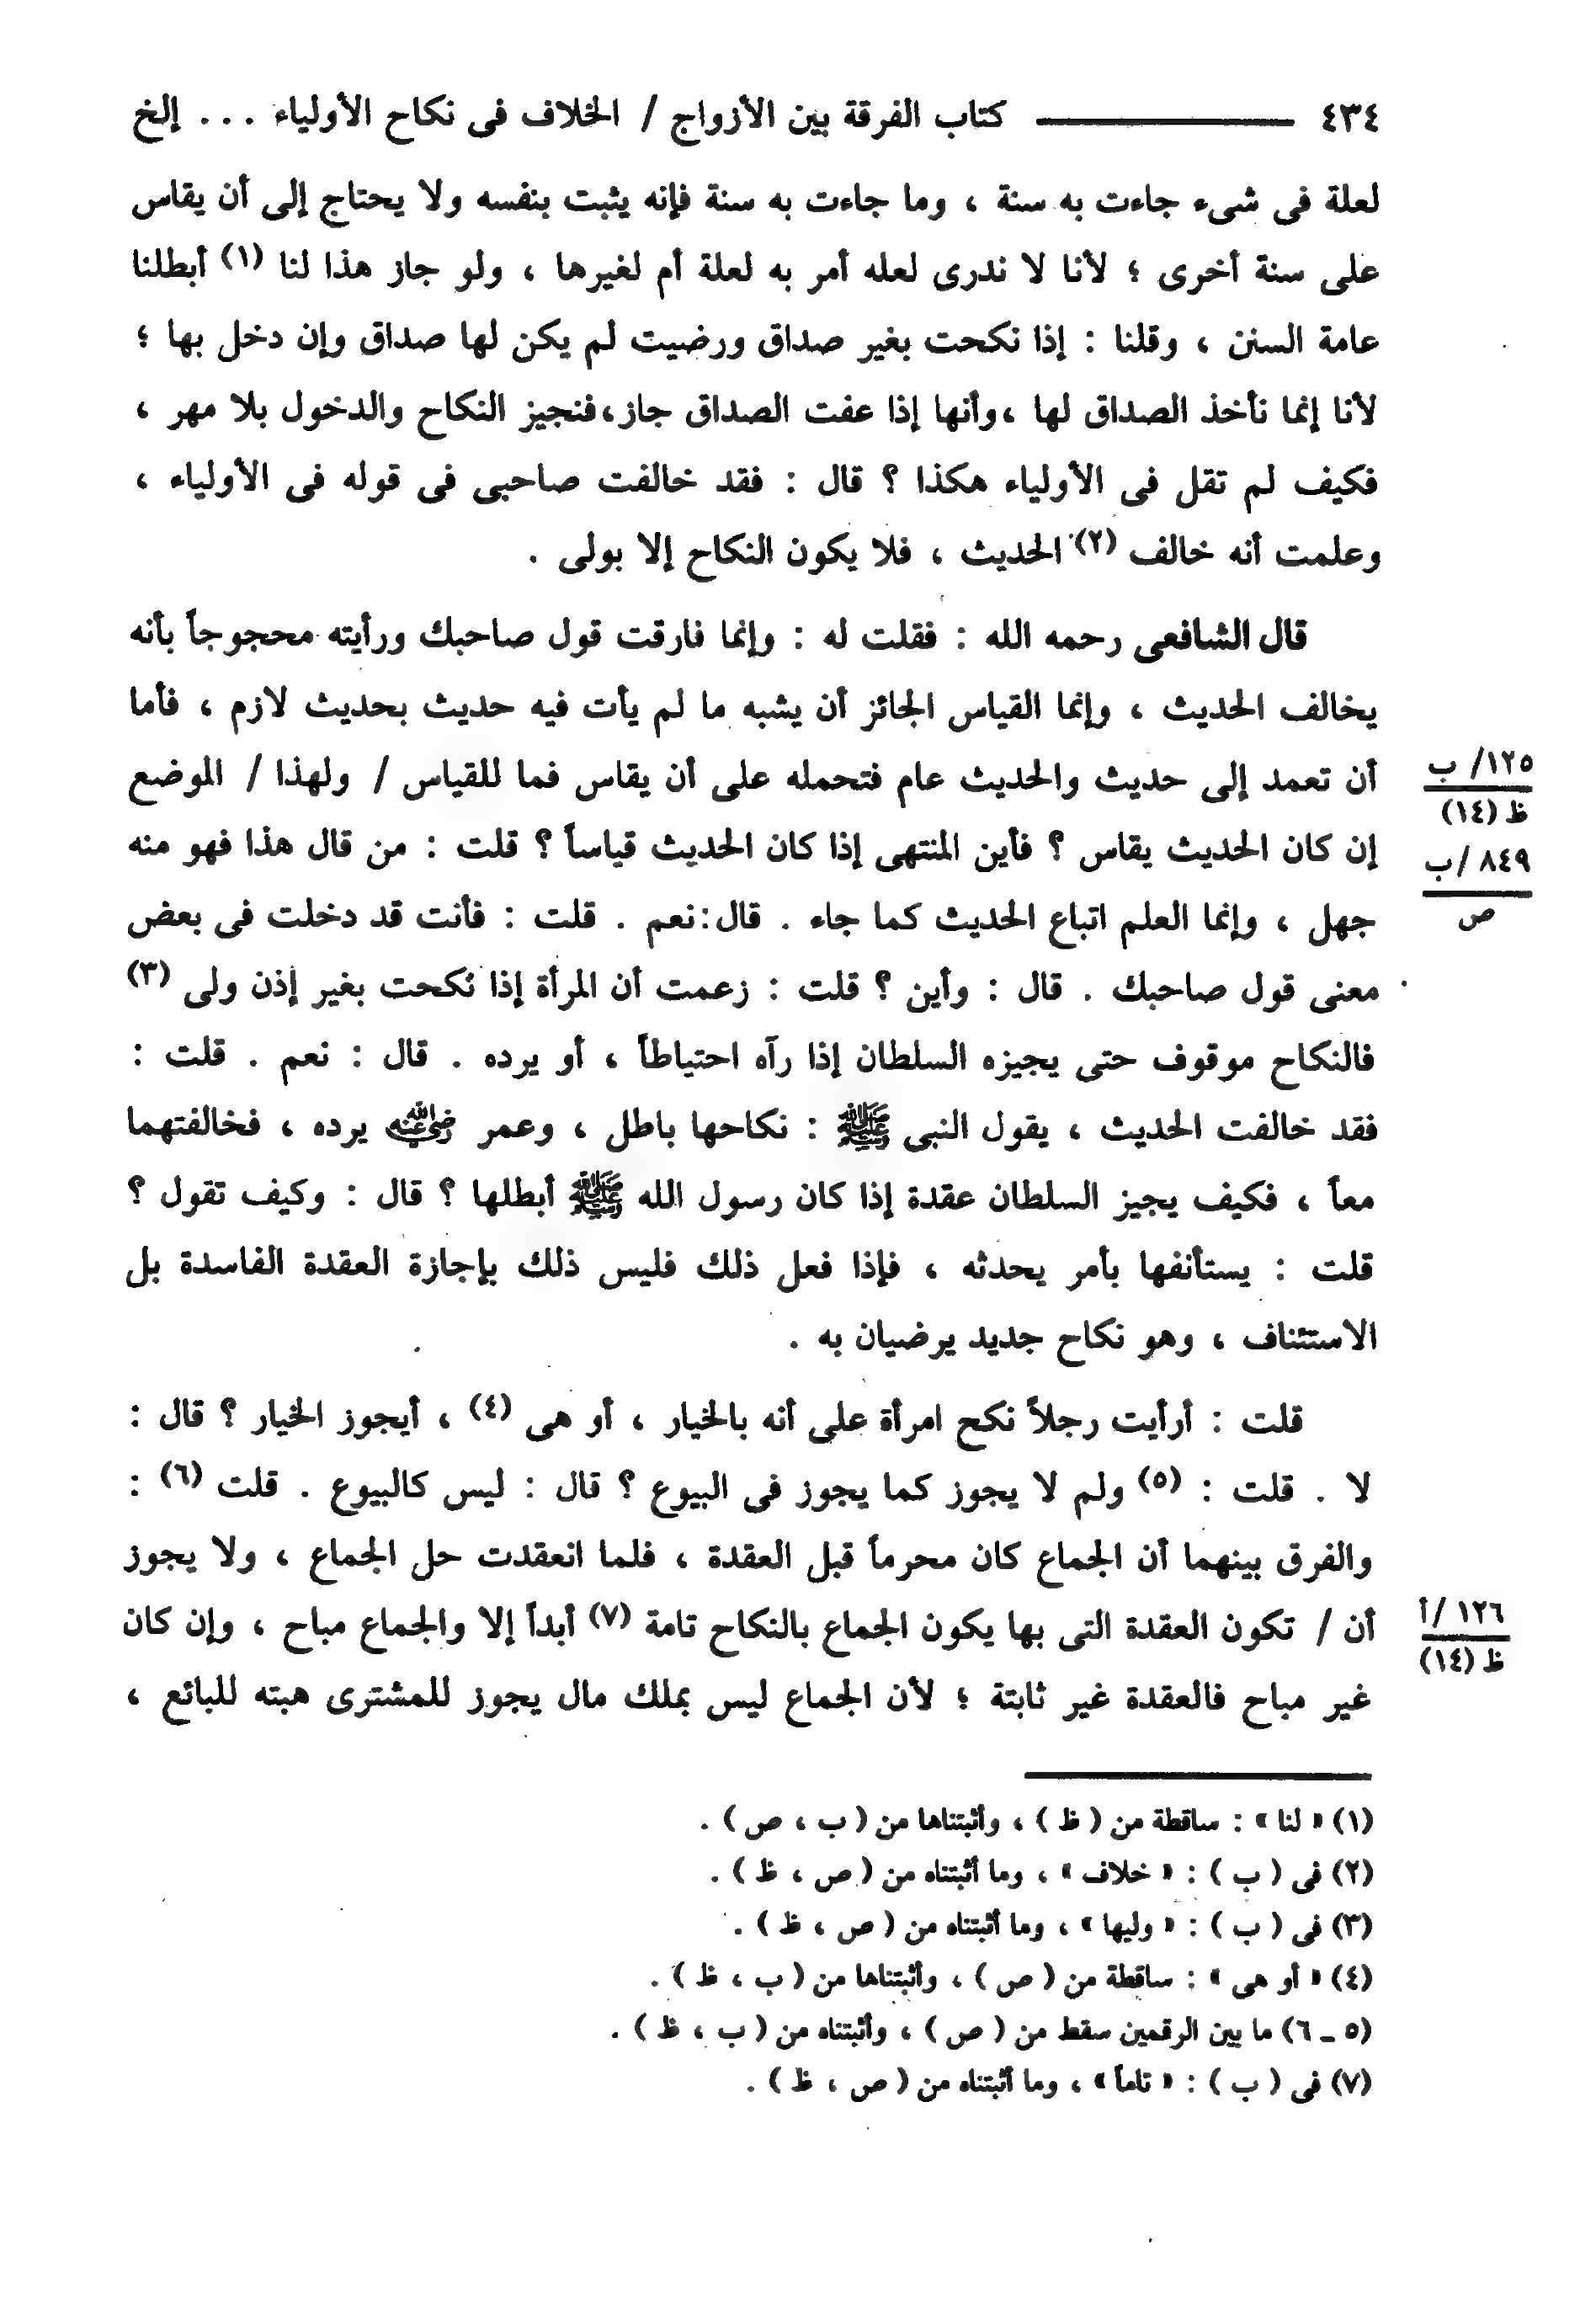 ٤٣٤ ـــــــــ كتاب الفرقة بين الأزواج / الخلاف فى نكاح الأولياء . . . إلخ
لعلة فى شىء جاءت به سنة ، وما جاءت به سنة فإنه يثبت بنفسه ولا يحتاج إلى أن يقاس
على سنة أخرى ؛ لأنا لا ندرى لعله أمر به لعلة أم لغيرها ، ولو جاز هذا لنا (١) أبطلنا
عامة السنن ، وقلنا : إذا نكحت بغير صداق ورضيت لم يكن لها صداق وإن دخل بها ؛
لأنا إنما نأخذ الصداق لها ،وأنها إذا عفت الصداق جاز،فنجيز النكاح والدخول بلا مهر ،
فكيف لم تقل فى الأولياء هكذا ؟ قال : فقد خالفت صاحبى فى قوله فى الأولياء ،
وعلمت أنه خالف (٢) الحديث ، فلا يكون النكاح إلا بولى .
قال الشافعى رحمه الله : فقلت له : وإنما فارقت قول صاحبك ورأيته محجوجاً بأنه
يخالف الحديث ، وإنما القياس الجائز أن يشبه ما لم يأت فيه حديث بحديث لازم ، فأما
أن تعمد إلى حديث والحديث عام فتحمله على أن يقاس فما للقياس / ولهذا / الموضع
١٢٥/ ب
ظ (١٤)
إن كان الحديث يقاس ؟ فأين المنتهى إذا كان الحديث قياساً ؟ قلت : من قال هذا فهو منه
٨٤٩ /ب
ص
جهل ، وإنما العلم اتباع الحديث كما جاء . قال:نعم . قلت : فأنت قد دخلت فى بعض
معنى قول صاحبك . قال : وأين ؟ قلت : زعمت أن المرأة إذا نُكحت بغير إذن ولى (٣)
فالنكاح موقوف حتى يجيزه السلطان إذا رآه احتياطاً ، أو يرده . قال : نعم . قلت :
فقد خالفت الحديث ، يقول النبى ﷺ : نكاحها باطل ، وعمر رضي الله عنه يرده ، فخالفتهما
معاً ، فكيف يجيز السلطان عقدة إذا كان رسول الله ﷺ أبطلها ؟ قال : وكيف تقول ؟
قلت : يستأنفها بأمر يحدثه ، فإذا فعل ذلك فليس ذلك بإجازة العقدة الفاسدة بل
الاستئناف ، وهو نكاح جديد يرضيان به .
قلت : أرأيت رجلاً نكح امرأة على أنه بالخيار ، أو هى (٤) ، أيجوز الخيار ؟ قال :
لا . قلت : (٥) ولم لا يجوز كما يجوز فى البيوع ؟ قال : ليس كالبيوع . قلت (٦) :
والفرق بينهما أن الجماع كان محرماً قبل العقدة ، فلما انعقدت حل الجماع ، ولا يجوز
أن / تكون العقدة التى بها يكون الجماع بالنكاح تامة (٧) أبداً إلا والجماع مباح ، وإن كان
١٢٦ /أ
ظ (١٤)
غير مباح فالعقدة غير ثابتة ؛ لأن الجماع ليس بملك مال يجوز للمشترى هبته للبائع ،
(١) « لنا » : ساقطة من ( ظ ) ، وأثبتناها من ( ب ، ص ) .
(٢) فى ( ب ) : « خلاف » ، وما أثبتناه من ( ص ، ظ ) .
(٣) فى ( ب ) : « وليها » ، وما أثبتناه من ( ص ، ظ ) .
(٤) « أو هى » : ساقطة من ( ص ) ، وأثبتناها من ( ب ، ظ ) .
(٥ ـ ٦) ما بين الرقمين سقط من ( ص ) ، وأثبتناه من ( ب ، ظ ) .
(٧) فى ( ب ) : « تاماً » ، وما أثبتناه من ( ص ، ظ ) .